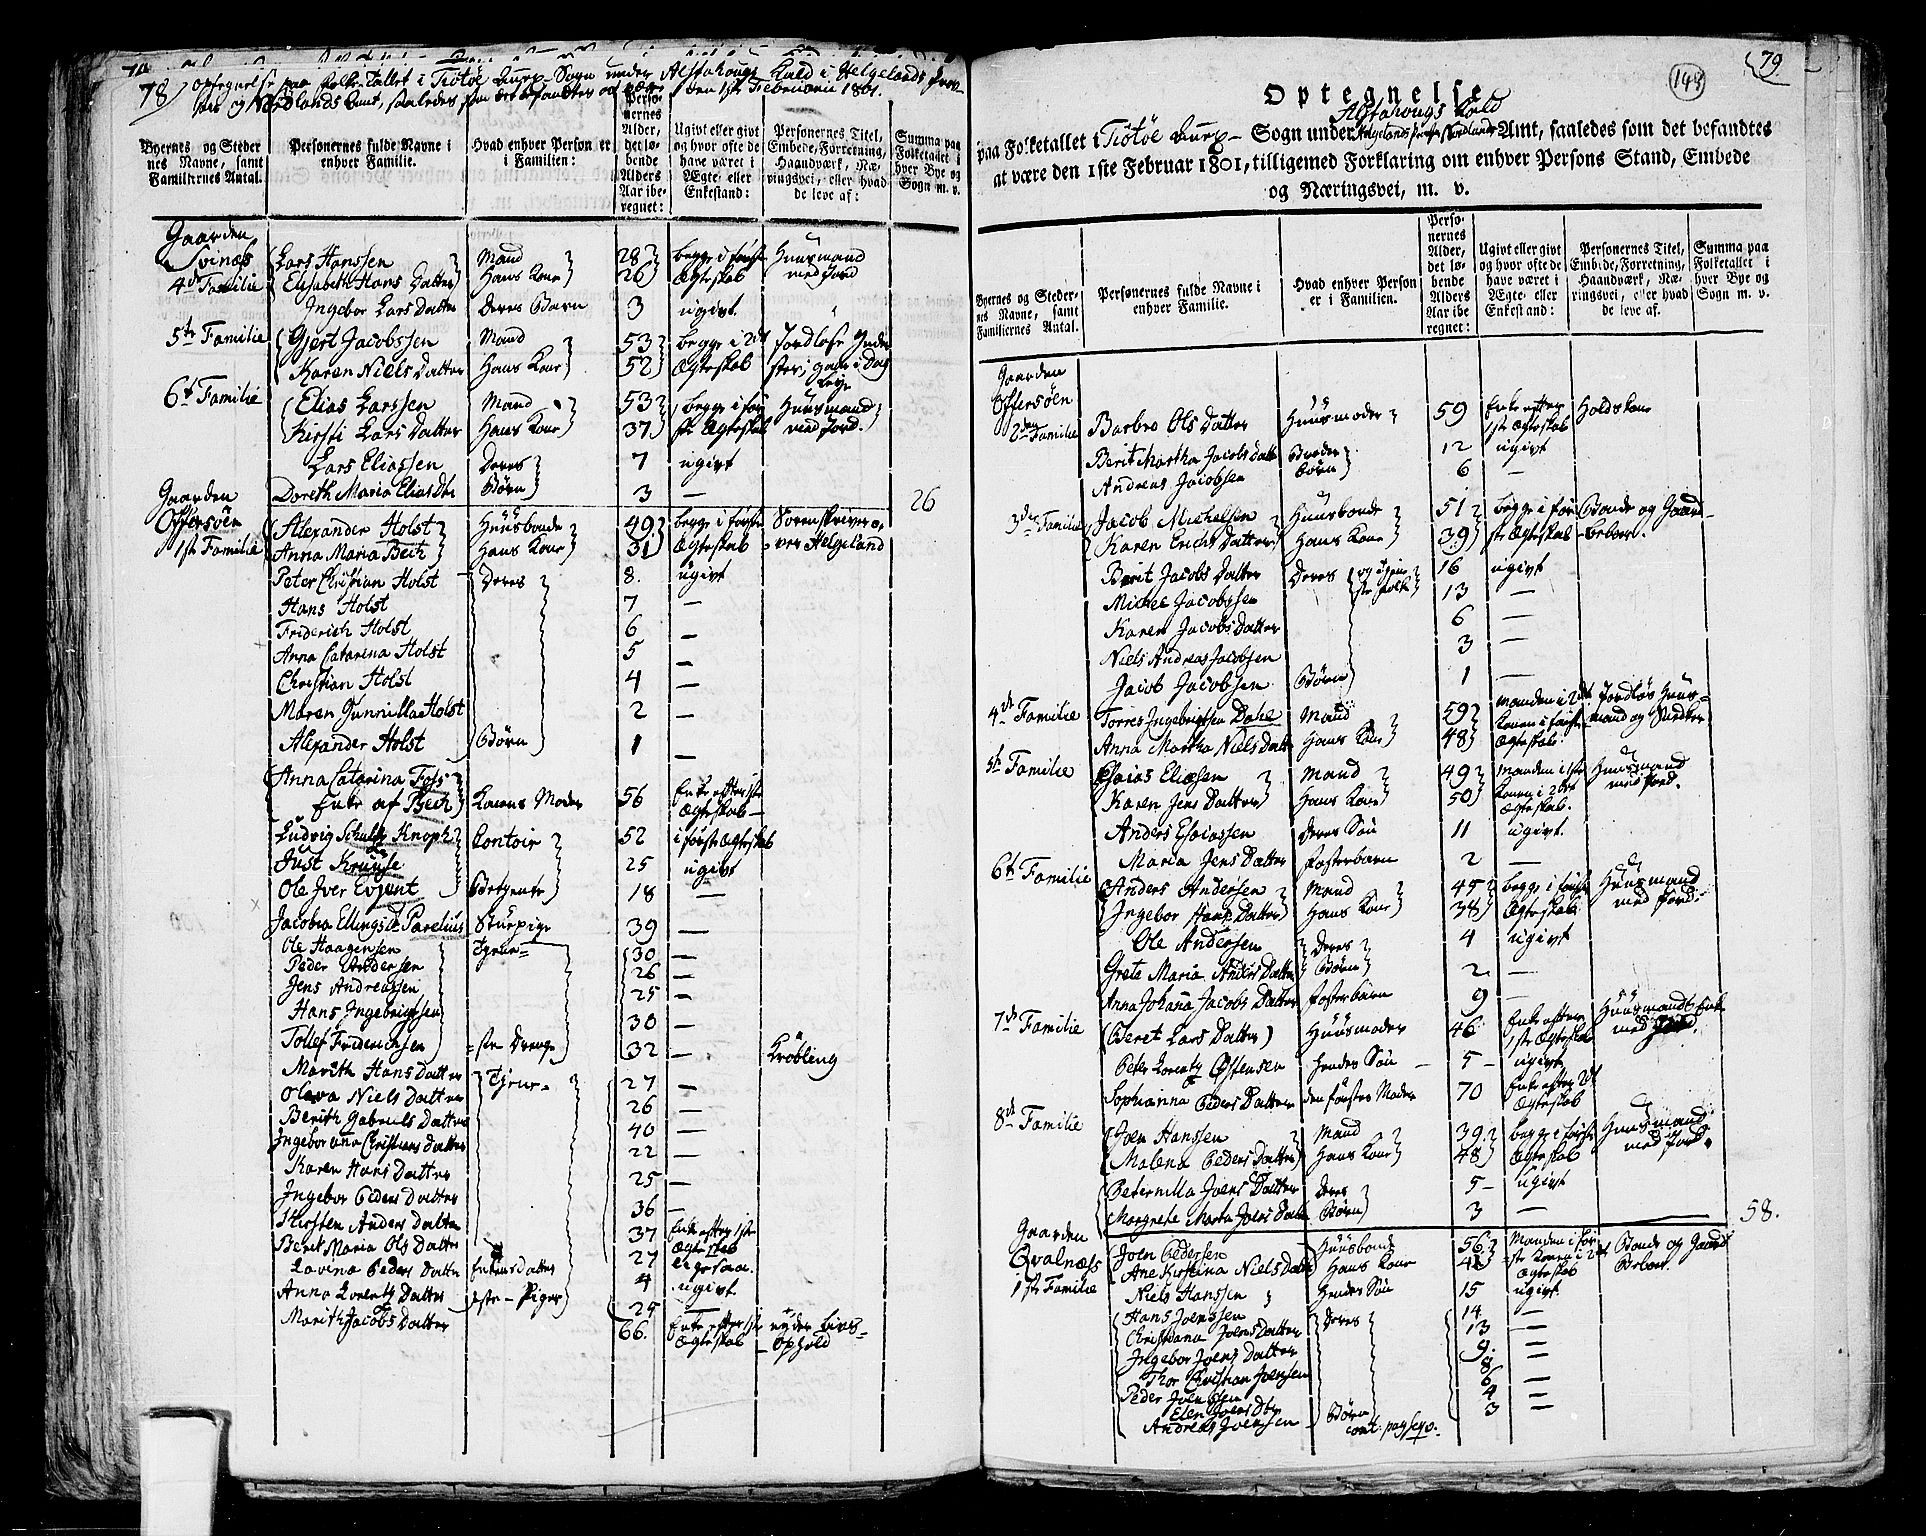 78
Optegnelse paa Folke-Tallet i Tiötöe Annex-Sogn under Alstahougs Kald i Helgelands
og Nordlands Amt, saaledes som det befandtes at være den 1ste Februarii 1801.
Byernes og Steder nes Navne, samt Familiernes Antal.
Personernes fulde Navne i enhver Familie.
Hvad enhver Person er i Familien:
Personernes Alder, det løbende Alders Aar iberegnet:
Ugivt eller givt og hvor ofte de have været i Ægte- eller Enkestand:
Personernes Titel, Embede, Forretning, Haandværk, Næringsvei, eller hvad de leve af:
Summa paa Folketallet i hver Bye og Sogn m. v.
Gaarden
Svinæs
4de Familie
Lars Hanssen Mand 28 begge i første Huusmand
Elisabeth Hans Datter Hans Kone 26 Ægteskab med Jord
Ingebor Lars Datter Deres Barn 3 ugivt
5te Familie Gjert Jacobssen Mand 53 begge i 2det Jordløse Inder
Karen Niels Datter Hans Kone 52 Ægteskab
6te Familie Elias Larssen Mand 53 begge i før Huusmand
Kirsti Lars Datter Hans Kone 37 ste Ægteskab med Jord.
Lars Eliassen Deres 7 ugivt
Doreth Maria Elias Dtr Børn 3 — 26
Gaarden
Offersøen
1ste Familie
Alexander Holst Huusbonde 49 begge i første Sorenskriver o
Anna Maria Bech Hans Kone 31 Ægteskab ver Helgeland
Peter Christian Holst Deres 8. ugivt
Hans Holst 7 —
Friderich Holst 6 —
Anna Catarina Holst 5 —
Christian Holst 4 —
Maren Gunnilla Holst 2 —
Alexander Holst Børn 1 —
Anna Catarina Foss
Enke af Bech Konens Moder 56 Enke efter 1ste Ægteskab
Ludvig Schultz Knoph Contoir 52 i første Ægteskab
Just Kruuse 25 ugivt
Ole Iver Evjent Betjente 18 —
Jacobia Ellings D. Parelius Stuepige 39 —
Ole Haagensen Tjene= 30 —
Peder Andersen 26 —
Jens Andreassen 25 —
Hans Ingebrigtsen 30 —
Tollef Friderichsen =ste Drenge 32 — Krøbling
Marith Hans Datter Tjene= 27 —
Olava Niels Datter 26 —
Berith Gabriels Datter 40 —
Ingebor Ana Christians Datter 22 —
Karen Hans Datter 25 —
Ingebor Peders Datter 36 —
Kirsten Anders Datter 37 Enke efter 1ste Ægteskab
Berit Maria Ols Datter 27 ligesaa.
Lovina Peders Datter Enkens datter 4 ugivt
Anna Lorentz Datter ste-Piger 24
Marith Jacobs Datter 66. Enke efter 1ste Ægteskab nyder Livs= Ophold
79
144
Optegnelse
paa Folketallet i Tiötöe Annex- Sogn under Alstahougs Kald Helgelands Nordlands Amt, saaledes som det befandtes
at være den 1ste Februar 1801, tilligemed Forklaring om enhver Persons Stand, Embede
og Næringsvei, m. v.
Byernes og Steder nes Navne, samt Familiernes Antal.
Personernes fulde Navne i enhver Familie.
Hvad enhver Person er i Familien.
Personernes Alder, det løbende Alders Aar iberegnet:
Ugivt eller givt og hvor ofte de have været i Ægte- eller Enkestand:
Personernes Titel, Embede, Forretning, Haandværk, Næringsvei, eller hvad de leve af.
Summa paa Folketallet i hver Bye og Sogn m. v.
Gaarden
Offersøen
2den Familie Barbro Ols Datter Huusmoder 59 Enke efter 1ste Ægteskab Holdskone
Berit Martha Jacobs Datter 12 ugivt
Andreas Jacobsen Børn 6 —
3de Familie Jacob Michelsen Huusbonde 51 begge i før Bonde og Gaard
Karen Erichs Datter Hans Kone 39 ste Ægteskab Beboer.
Berit Jacobs Datter Deres og Tjeneste Folk 16 ugivt
Michel Jacobssen 13 —
Karen Jacobs Datter 6 —
Niels Andreas Jacobsen 3 —
Jacob Jacobsen Børn 1 —
4de Familie Torres Ingebrigtsen Dahe Mand 59 manden i 2det Jordløs Huus
Anna Martha Niels Datter Hans Kone 48 Konen i første Ægteskab mand og Snedker
5te Familie Esaias Eliæsen Mand 49 Manden i 1ste Huusmand
Karen Jens Datter Hans Kone 50 Konen i 2det Ægteskab. med Jord.
Anders Esaiassen Deres Søn 11 ugivt
Maria Jens Datter Fosterbarn 2 —
6te Familie Anders Andersen Mand 45 begge i første Huusmand
Ingebor Hans Datter Hans Kone 38 Ægteskab. med Jord.
Ole Andersen Deres 4 ugivt
Grete Maria Anders Datter Børn 2 —
Anna Johana Jacobs Datter Fosterbarn 9 —
7de Familie Beret Lars Datter Huusmoder 46 Enke efter 1ste Ægteskab Huusmands Enke med Jord.
Peter Lorentz Østensen Hendes Søn 5 ugivt
Sophianna Peders Datter den førstes Moder 70 Enke efter 2det Ægteskab
8de Familie Joen Hanssen Mand 39 begge i første Huusmand
Malena Peders Datter Hans Kone 48 Ægteskab med Jord.
Peternilla Joens Datter Deres 5 ugivt
Margrete Marta Joens Datter Børn 3 — 58.
Gaarden
Qvalnæss
1ste Familie
Joen Pedersen Huusbonde 56 Manden i før Bonde og Gaard
Ane Kirstina Niels Datter Hans Kone ste Konen i 2det Ægteskab Beboer.
Niels Hanssen Hendes Søn 15 ugivt
Hans Joenssen Deres 14 —
Christiana Joens Datter 13 —
Ingebor Joens Datter 9. —
Thor Christian Joensen 8 —
Peder Joenssen 6 —
Elen Joens Dtr 4 —
Andreas Joensen Børn 3 —
cont: pag seqv.